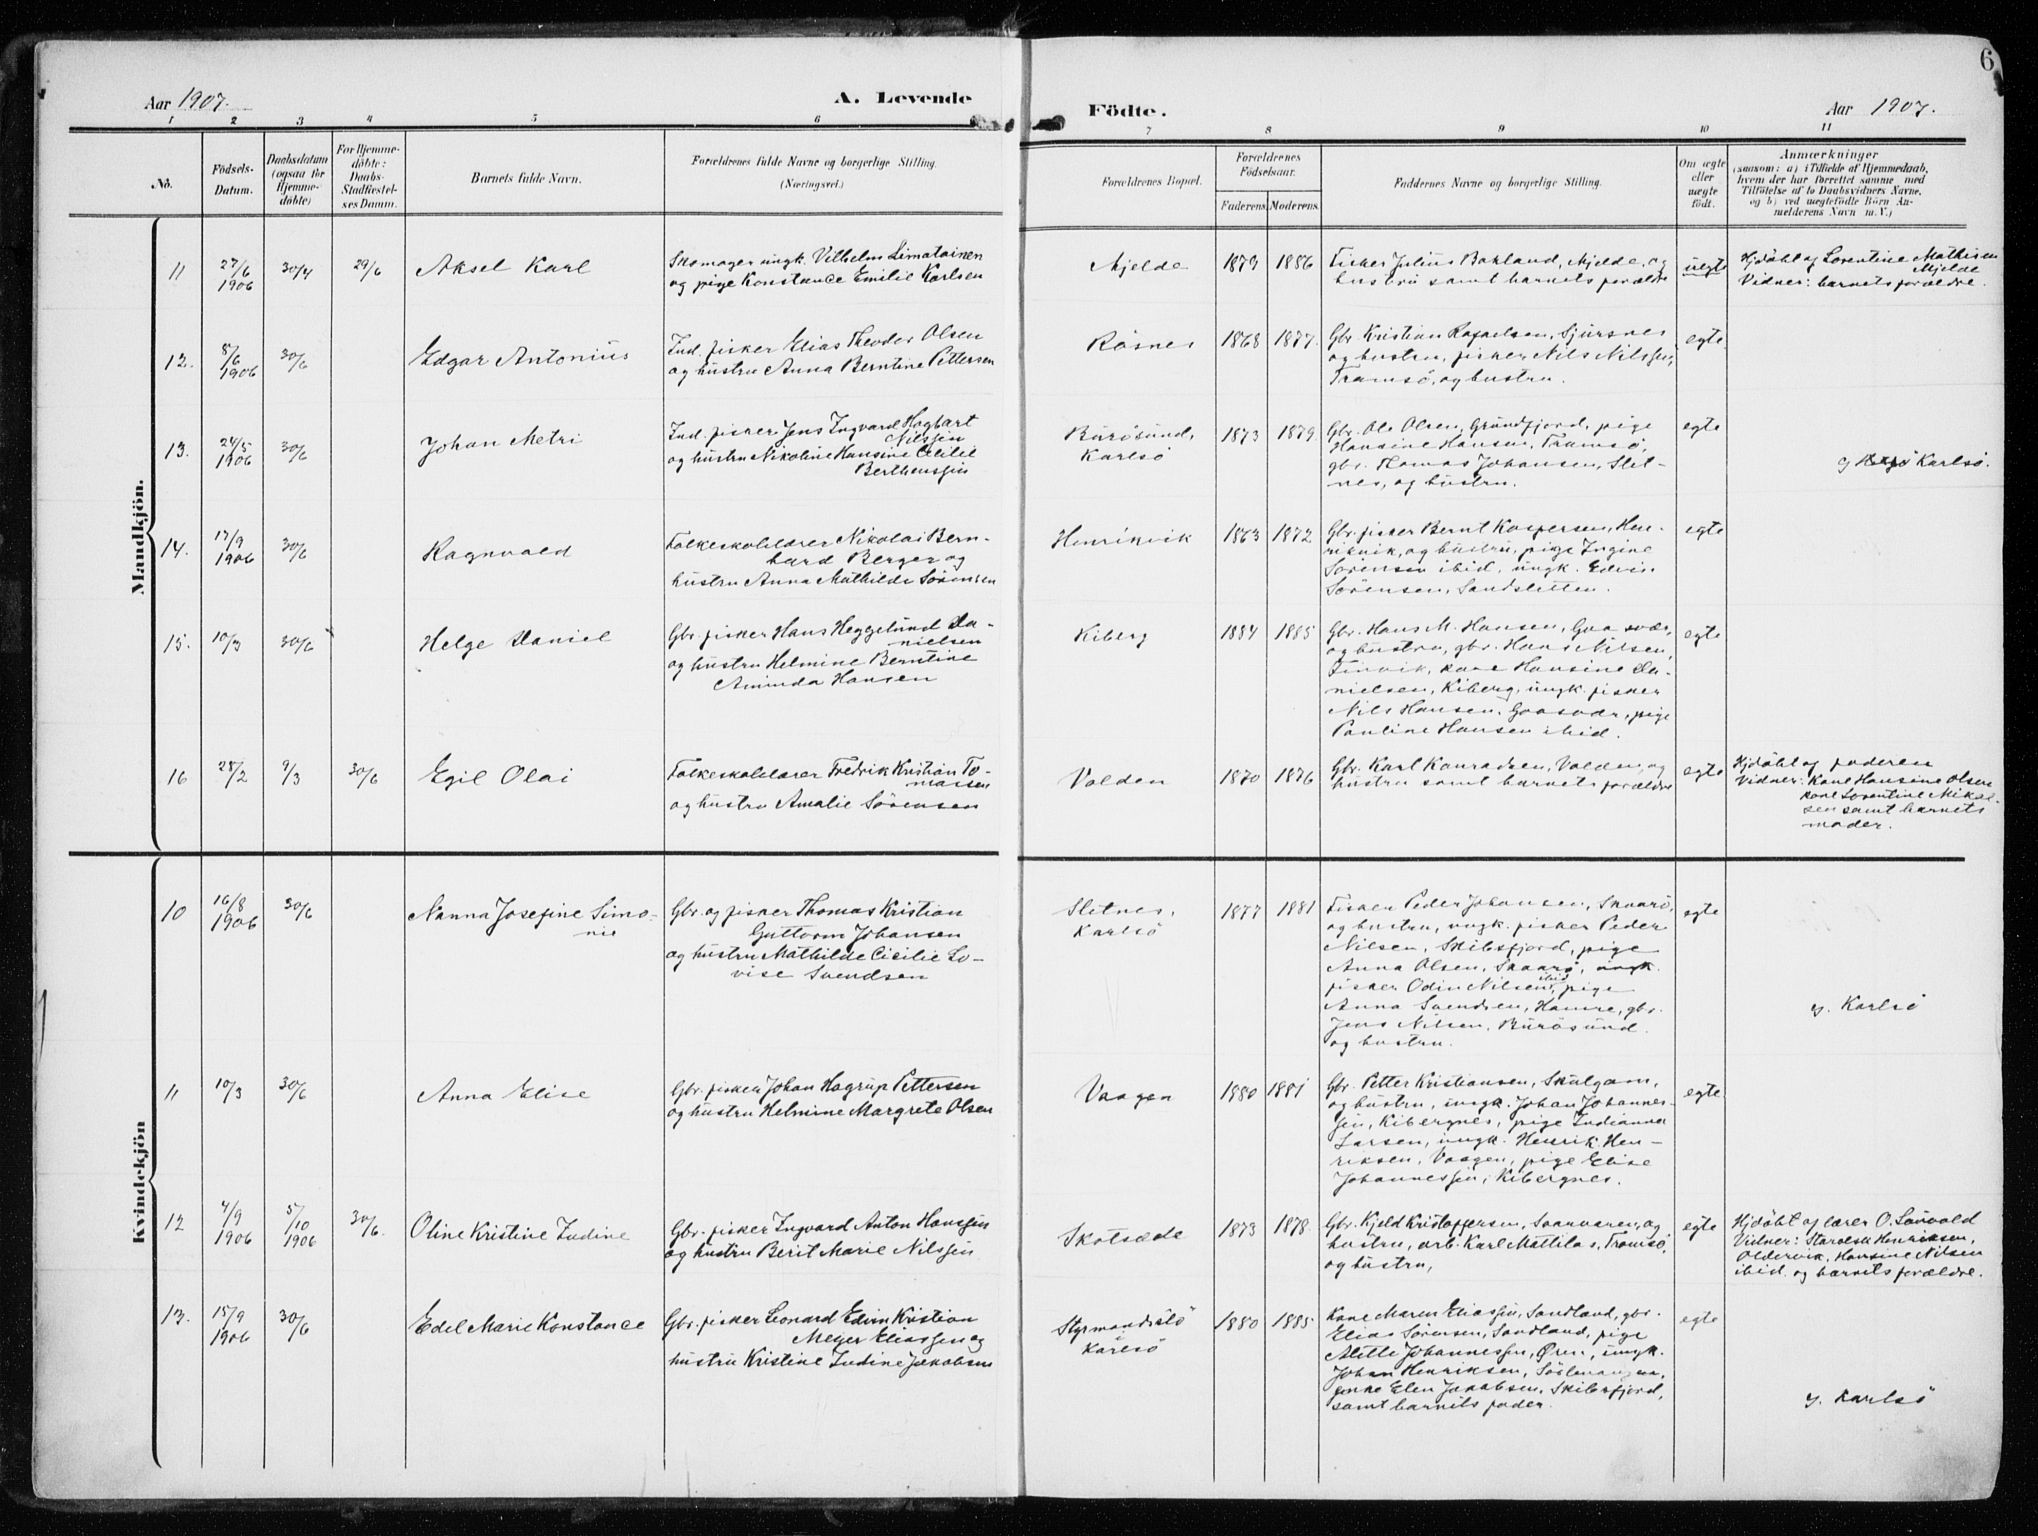 6
Aar 1907.
A. Levende
Födte.
Aar 1907.
1 2 3 4 5 6 7 8 9 10 11
No.
Födsels-
Datum.
Daabsdatum
(ogsaa for
Hjemme-
döbte)
For Hjemme-
döbte:
Daabs-
Stadfæstel-
ses Datum.
Barnets fulde Navn.
Forældrenes fulde Navne og borgerlige Stilling.
(Næringsvei.)
Forældrenes Bopæl.
Forældrenes
Födselsaar.
Faderens. Moderens.
Faddernes Navne og borgerlige Stilling.
Om ægte
eller
uægte
födt.
Anmærkninger
(saasom: a) i Tilfælde af Hjemmedaab,
hvem der har forrettet samme med
Tilföielse af to Daabsvidners Navne,
og b) ved uægtefödte Börn An-
melderens Navn m. V.)
Mandkjön.
11
27/6
1906
30/4
29/6
Aksel Karl
Skomager ungk. Vilhelm Limatainen
og pige Konstance Emilie Karlsen
Mjelde
1879 1886
Fisker Julius Bakland, Mjelde, og
hustru samt barnets forældre
uegte
Hjdöbt af Lorentine Mathisen
Mjelde
Vidner: barnets forældre.
12.
8/6
1906
30/6
Edgar Antonius
Ind. fisker Elias Theodor Olsen
og hustru Anna Berntine Pettersen
Råsnes
1868 1877.
Gbr. Kristian Rafaelsen, Sjursnes
og hustru, fisker Nils Nilssen,
Tromsö, og hustru.
egte
13.
24/5
1906
30/6
Johan Metri
Ind. fisker Jens Ingvard Hagbart
Nilssen
og hustru Nikoline Hansine Cecilie
Bertheussen
Burösund,
Karlsö
1873 1879
Gbr. Ole Olsen, Grundfjord, pige
Hansine Hansen, Tromsö,
gbr. Thomas Johansen, Slet-
nes, og hustru.
egte
Karlsö.
14.
17/9
1906
30/6
Ragnvald
Folkeskolelærer Nikolai Bern-
hard Berger og
hustru Anna Mathilde Sörensen
Henrikvik
1863 1872
Gbr. fisker Bernt Kaspersen, Hen-
rikvik, og hustru, pige Ingine
Sörensen ibid, ungk. Edvin
Sörensen, Sandsletten.
egte
15.
10/3
30/6
Helge Daniel
Gbr. fisker Hans Heggelund Da-
nielsen
og hustru Helmine Berntine
Aminda Hansen
Kiberg
1884 1885
Gbr. Hans M. Hansen, Gaasvær,
og hustru, gbr. Hans Nilsen,
Finvik, kone Hansine Da-
nielsen, Kiberg, ungk. fisker
Nils Hansen, Gaasvær, pige
Pauline Hansen ibid.
egte
16
28/2
9/3
30/6
Egil Olai
Folkeskolelærer Fredrik Kristian To-
massen
og hustru Amalie Sörensen
Valden
1870 1876
Gbr. Karl Konradsen, Valden, og
hustru samt barnets forældre
egte
Hjdöbt af faderen
Vidner: Kone Hansine Olsen
kone Lorentine Mikal-
sen samt barnets
moder.
Kvindekjön
10
16/8
1906
30/6
Nanna Josefine Simo-
nie
Gbr. og fisker Thomas Kristian
Guttorm Johansen
og hustru Mathilde Cicilie Lo-
vise Svendsen
Sletnes,
Karlsö
1877 1881
Fisker Peder Johansen, Skaarö,
og hustru, ungk. fisker Peder
Nilsen, Skibsfjord, pige
Anna Olsen, Skaarö, ungk.
fisker Odin Nilsen ibid, pige
Anna Svendsen, Hamre, gbr.
Jens Nilsen, Burösund.
og hustru.
egte
Karlsö
11
10/3
30/6
Anna Elise
Gbr. fisker Johan Hagrup Pettersen
og hustru Helmine Margrete Olsen
Vaagen
1880 1881
Gbr. Petter Kristiansen, Skulgam,
og hustru, ungk. Johan Johannes-
sen, Kibergnes, pige Indianna
Larsen, ungk. Henrik Hen-
riksen, Vaagen, pige Elise
Johannessen, Kibergnes.
egte
12
4/9
1906
5/10
1906
30/6.
Oline Kristine Indine
Gbr. fisker Ingvard Anton Hanssen
og hustru Berit Marie Nilssen
Skotsæde
1873 1878.
Gbr. Kjeld Kristoffersen, og
hustru, arb. Karl Mattila s, Tromsö,
og hustru,
egte
Hjdöbt af lærer O. Sauvold
Vidner: Henriksen,
Oldervik, Hansine Nilsen
ibid. og barnets forældre.
13.
15/9
1906
30/6
Edel Marie Konstance
Gbr. fisker Leonard Edvin Kristian
Meyer Eliassen og
hustru Kristine Indine Jakobsen
Styrmandstö
i
Karlsö
1880 1885
Kone Maren Eliassen, Sandland, gbr.
Elias Sörensen, Sandland, pige
Alette Johannessen, Ören, ungk.
Johan Henriksen,
enke Elen Jakobsen, Skibsfjord,
samt barnets fader.
egte
Karlsö